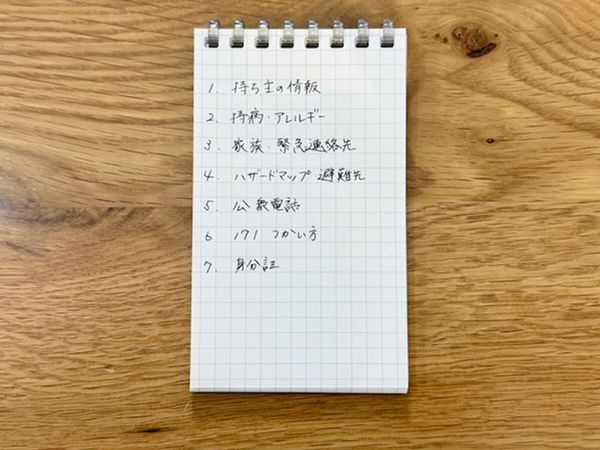 1. 持ち主の情報
2. 持病・アレルギー
3. 家族・緊急連絡先
4. ハザードマップ 避難先
5. 公衆電話
6 171 つかい方
7. 身分証